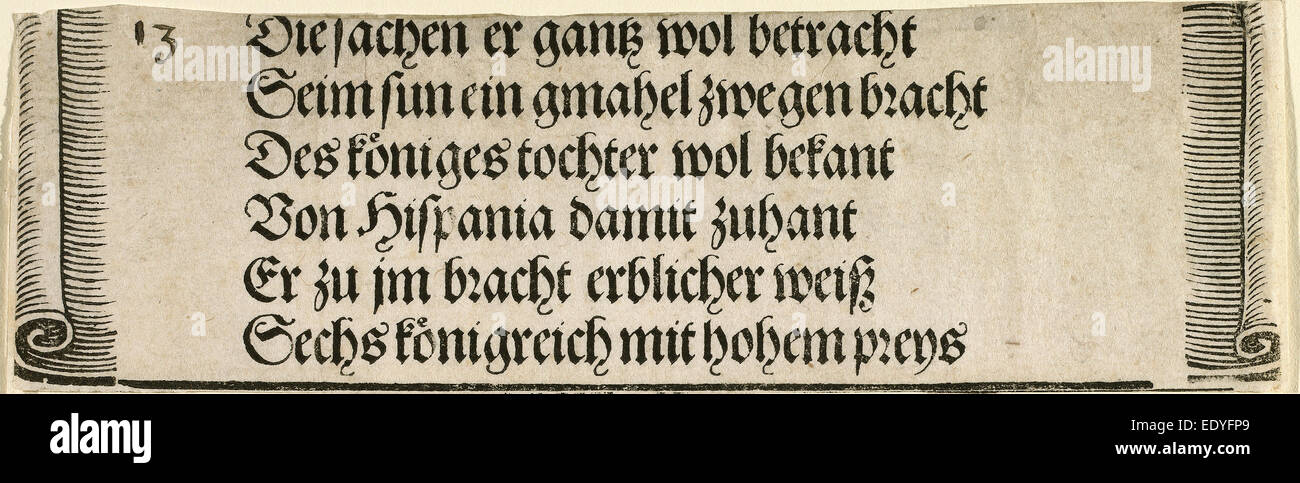 13
Die sachen er gantz wol betracht
Seim sun ein gmahel zwegen bracht
Des koͤniges tochter wol bekant
Von Hispania damit zuhant
Er zu jm bracht erblicher weiß
Sechs koͤnigreich mit hohem preys
alamy stock photo
EDYFP9
www.alamy.com